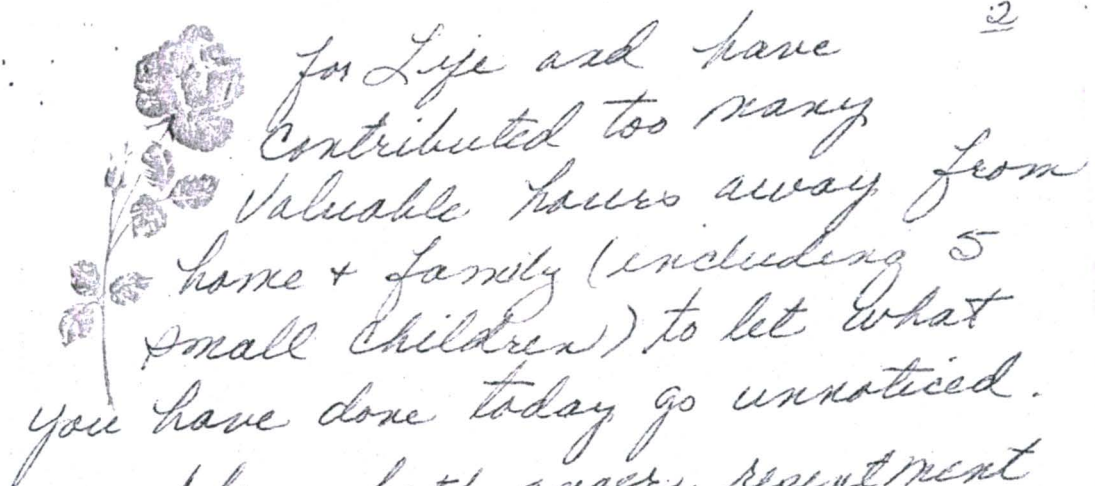 2
for Life and have
contributed too many
valuable hours away from
home + family (including 5
small children) to let what
you have done today go unnoticed.
resentment